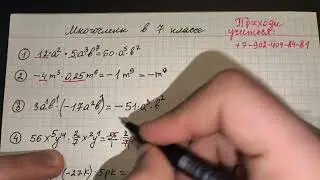 Многочлены в 7 классе
Приходи
учиться:
+7-902-404-84-81
① 12a² · 5a³b⁸ = 60·a⁵b⁸
② -4m³ · 0,25m⁶ = -1m⁹ = -m⁹
③ 3a¹b¹(-17a²b¹) = -51·a³·b²
④ 56x⁵y⁴ · 2/7 x²y¹ =
(-27k) · 5pk =